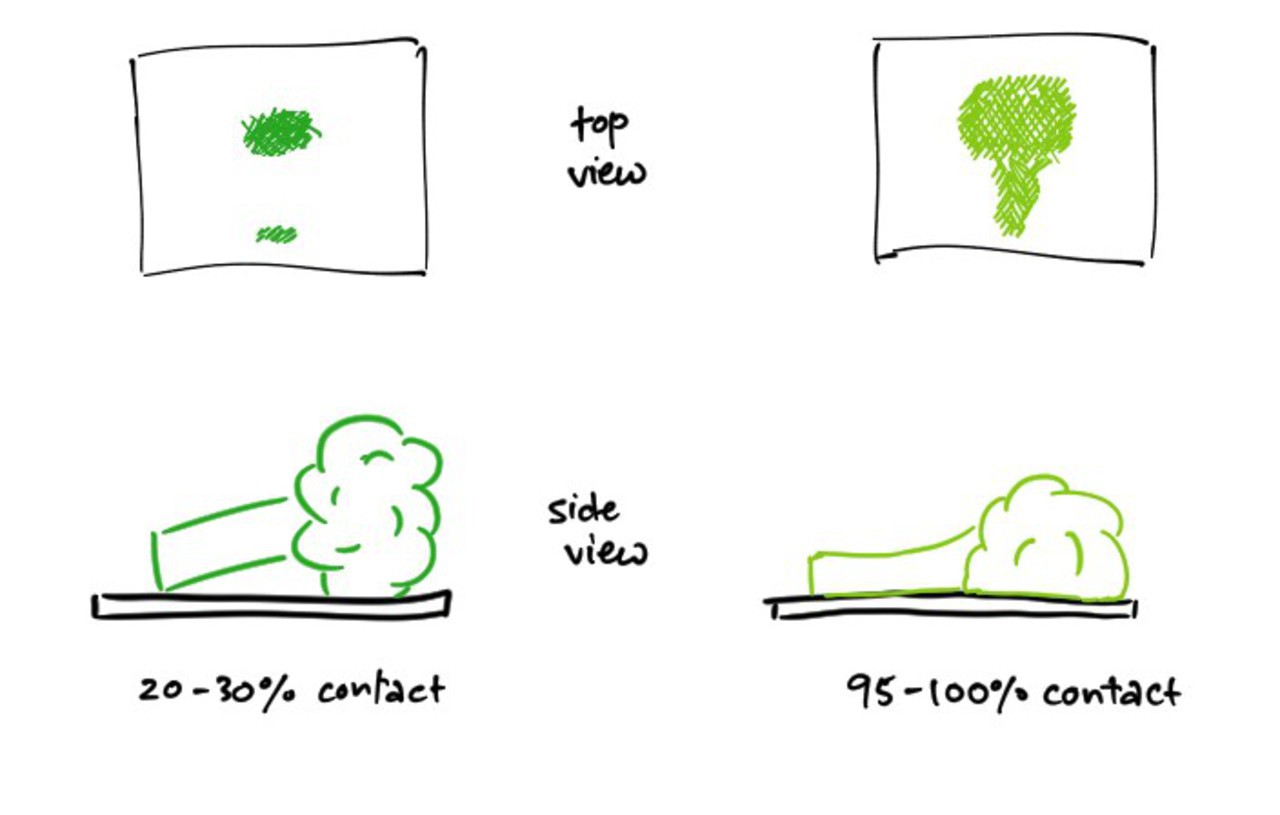 top
view
side
view
20-30% contact
95-100% contact